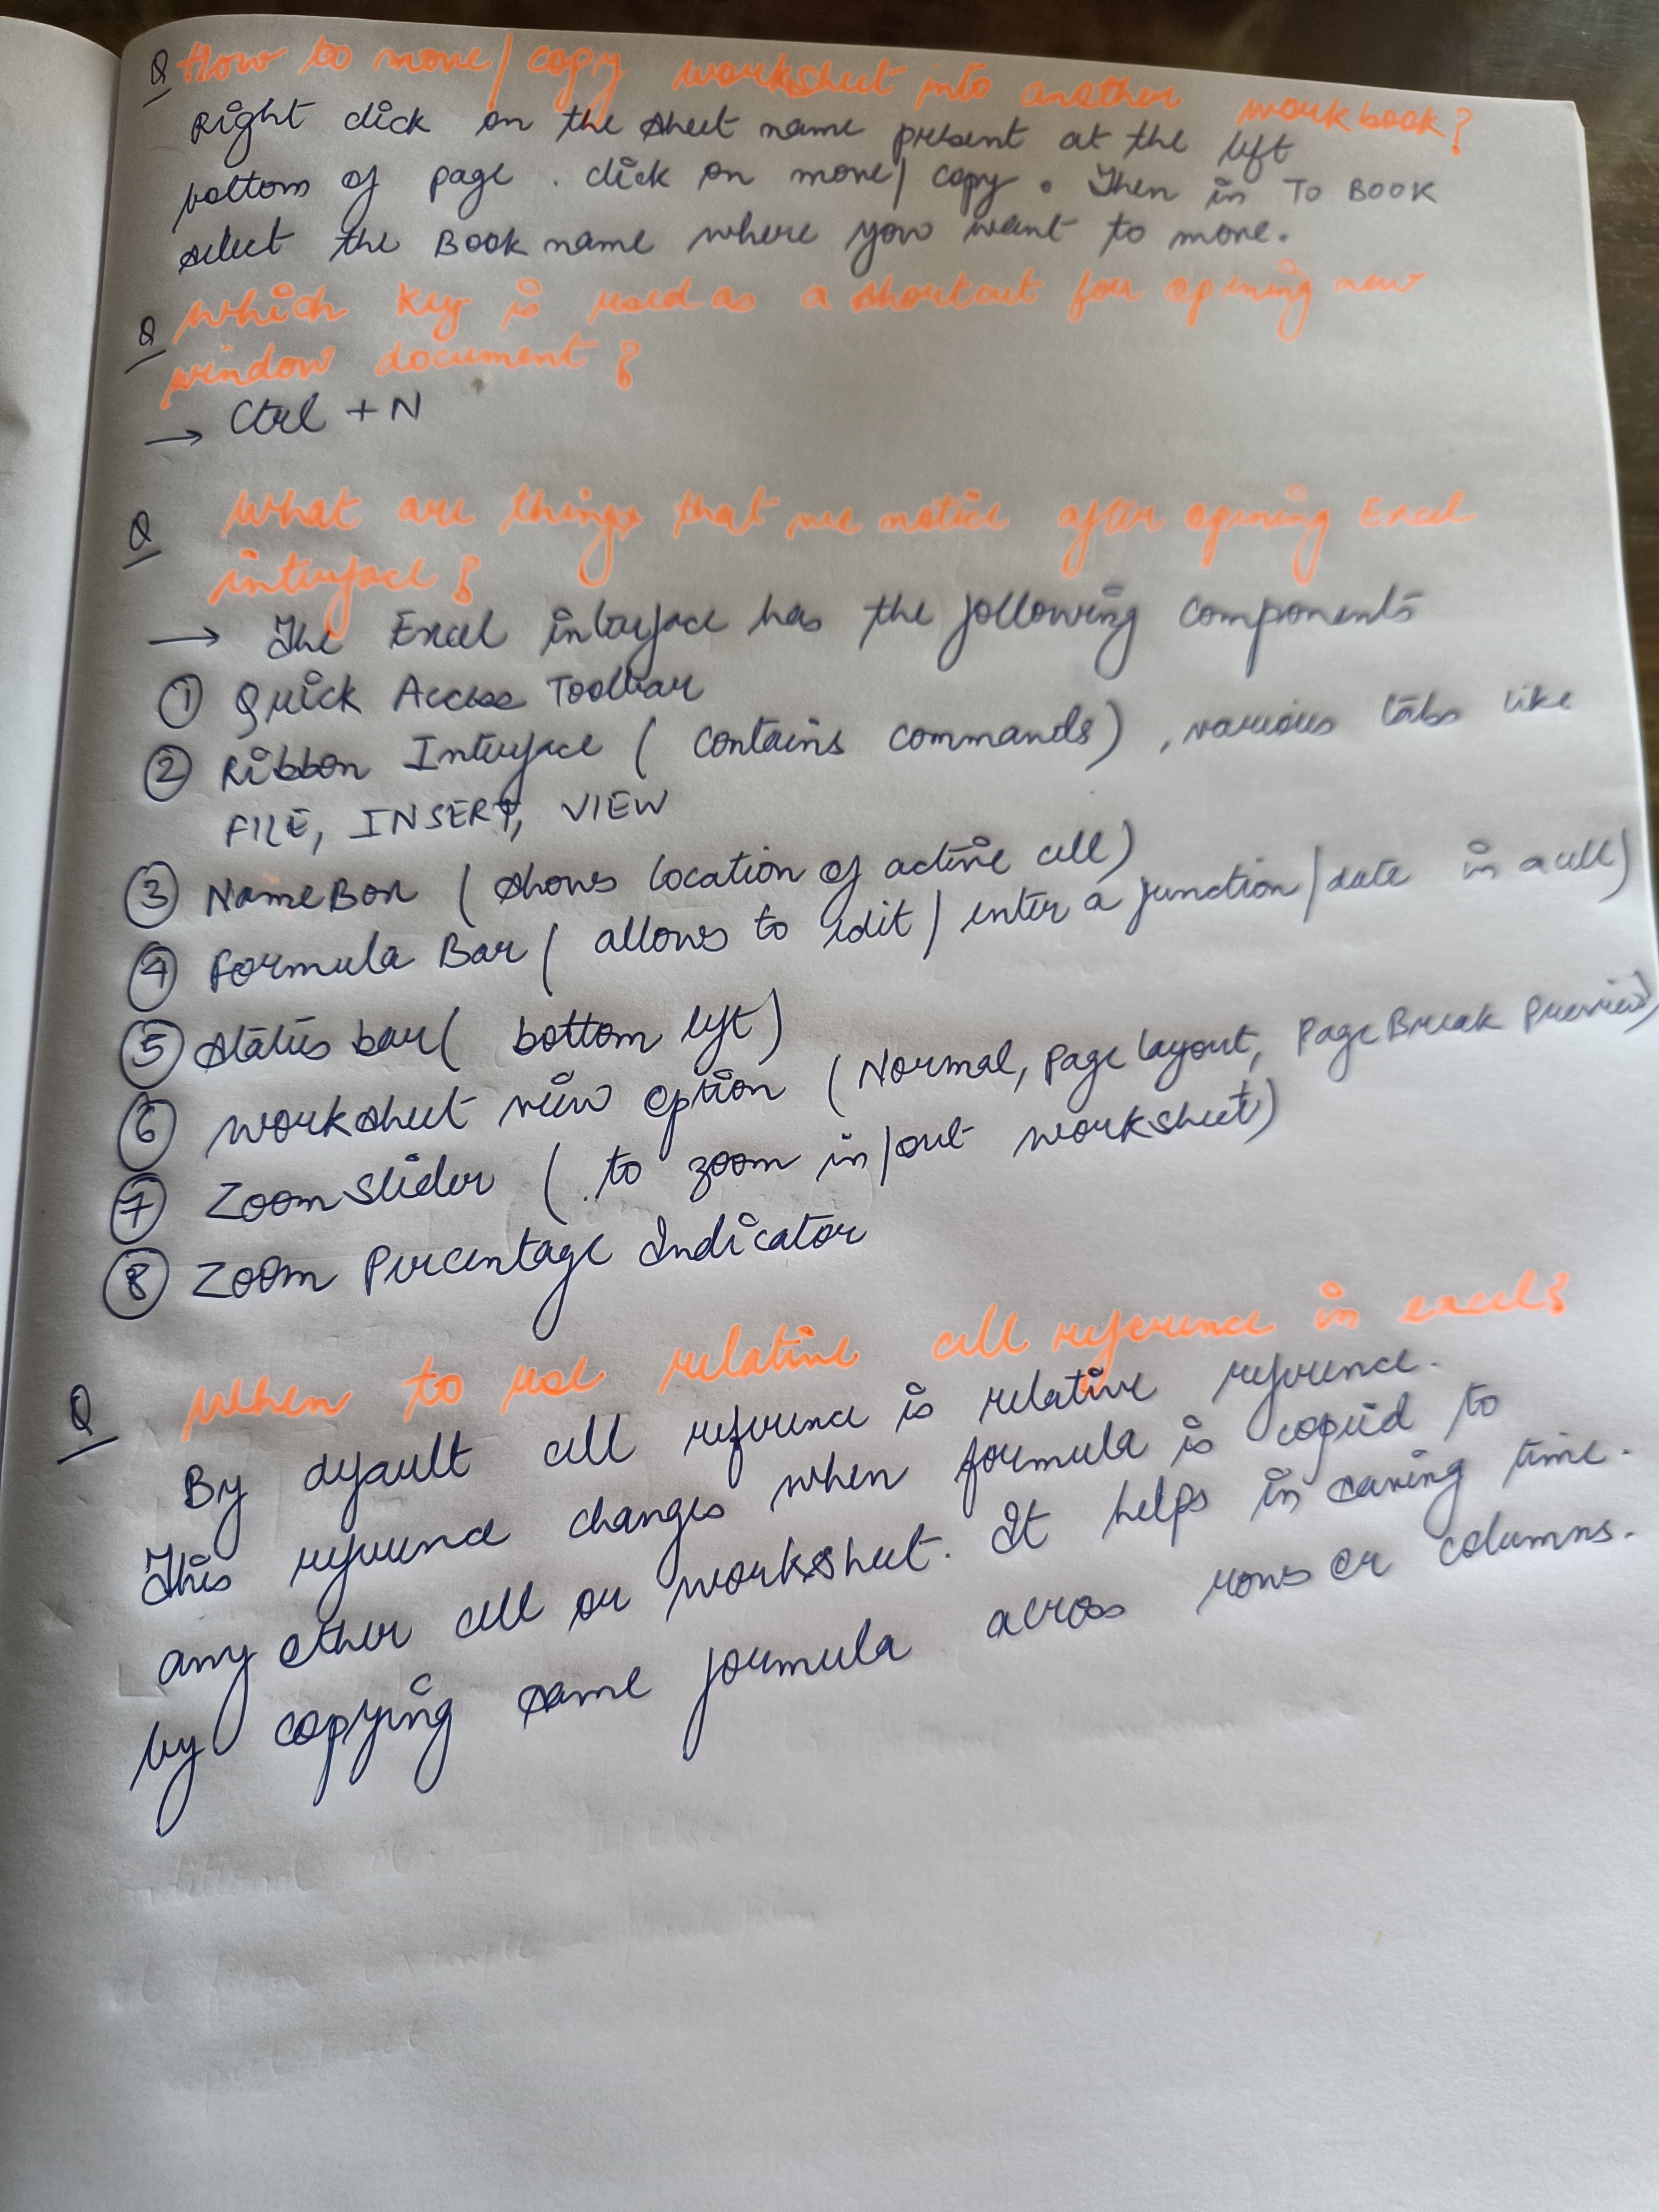 Q How to move/copy worksheet into another workbook?
Right click on the sheet name present at the left
bottom of page. click on move/copy. Then in TO BOOK
select the Book name where you want to move.
Q which key is used as a shortcut for opening new
window document?
→ Ctrl + N
Q what are things that we notice after opening Excel
interface?
→ The Excel interface has the following components
① Quick Access Toolbar
② Ribbon Interface (contains commands), various tabs like
FILE, INSERT, VIEW
③ Name Box (shows location of active cell)
④ Formula Bar (allows to edit/enter a function/date in a cell)
⑤ status bar (bottom left)
⑥ worksheet view option (Normal, Page layout, Page Break Preview)
⑦ Zoom Slider (to zoom in/out worksheet)
⑧ Zoom Percentage Indicator
Q when to use relative cell reference in excel?
By default cell reference is relative reference.
This reference changes when formula is copied to
any other cell or worksheet. It helps in saving time.
by copying same formula across rows or columns.